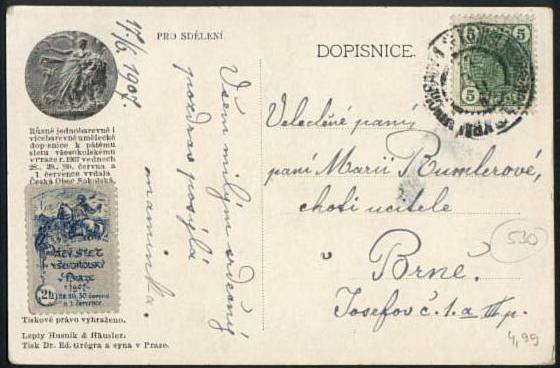 PRO SDĚLENÍ.
17/6. 1907.
Různé jednobarevné i
vícebarevné umělecké
dopisnice k pátému
sletu všesokolskému
v Praze r. 1907 ve dnech
28., 29., 30. června a
1 července vydala
Česká Obec Sokolská.
V. SLET
VŠESOKOLSKÝ
V PRAZE
1907
28. 29. 30. června
a 1. července
2h
Tiskové právo vyhraženo.
Lepty Husník & Häusler.
Tisk Dr. Ed. Grégra a syna v Praze.
Všem milým srdečný
pozdrav posýlá
maminka.
DOPISNICE.
5 5
5 5
Velectěné paní,
paní Marii Rumlerové,
choti učitele
v Brně.
Josefov č. 1. a III p.
530
4,99